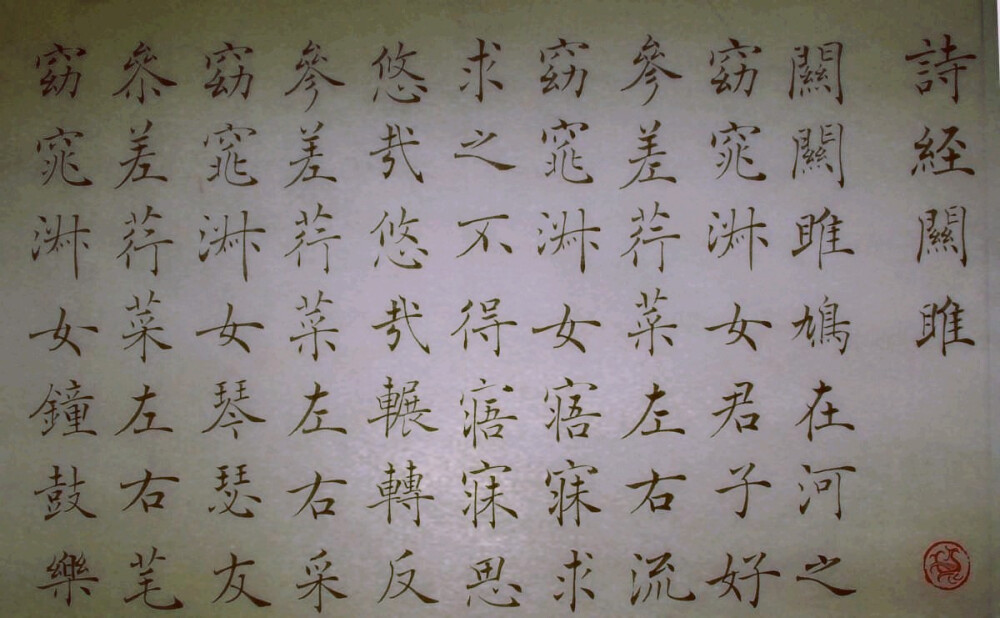 詩経關雎
關關雎鳩在河之
窈窕淑女君子好
參差荇菜左右流
窈窕淑女寤寐求
求之不得寤寐思
悠哉悠哉輾轉反
參差荇菜左右采
窈窕淑女琴瑟友
參差荇菜左右芼
窈窕淑女鐘鼓樂